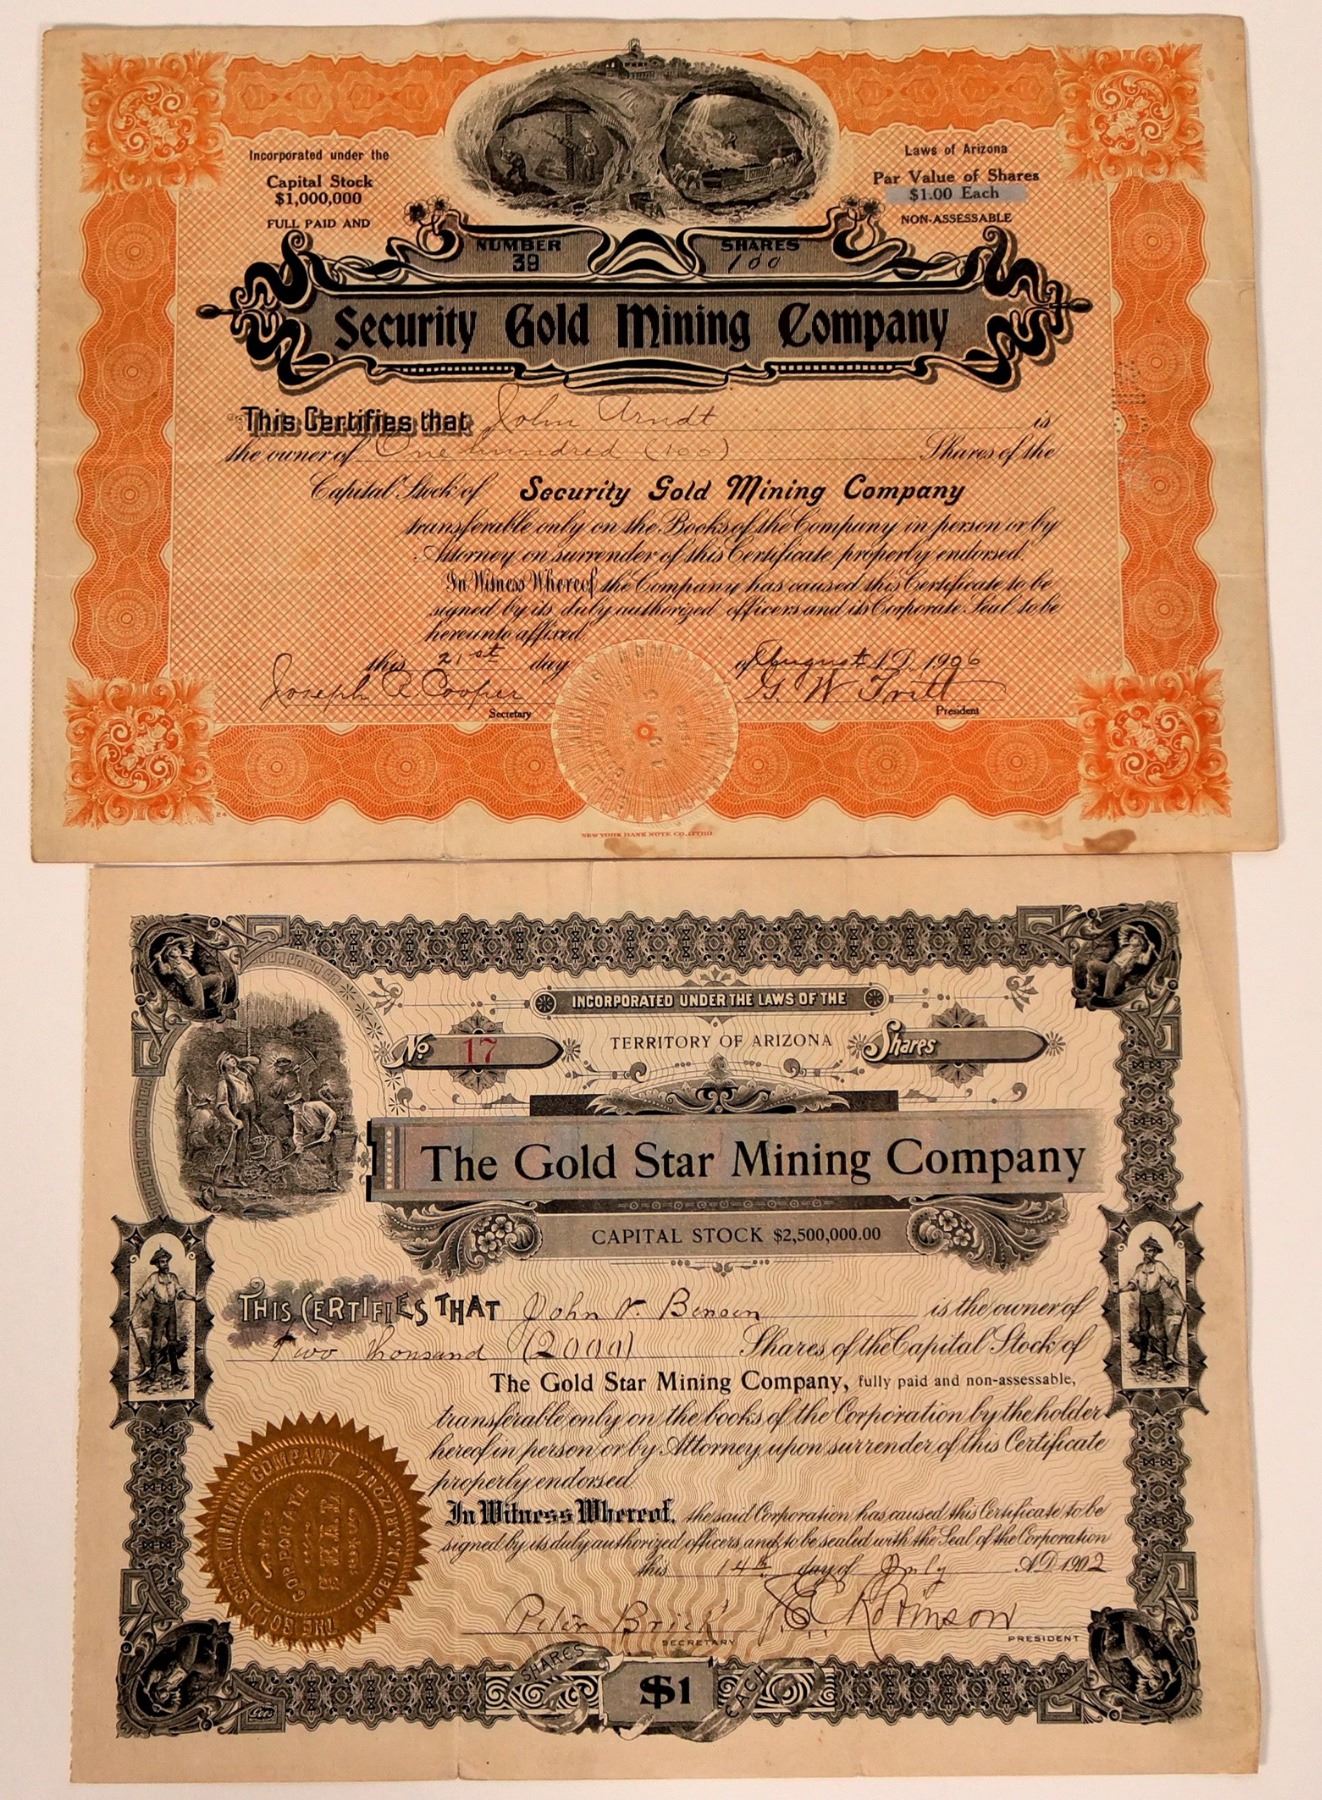 Incorporated under the
Laws of Arizona
Capital Stock
$1,000,000
Par Value of Shares
$1.00 Each
FULL PAID AND
NON-ASSESSABLE
NUMBER
39
SHARES
100
Security Gold Mining Company
This Certifies that John Arndt is
the owner of One hundred (100) Shares of the
Capital Stock of Security Gold Mining Company
transferable only on the Books of the Company in person or by
Attorney on surrender of this Certificate properly endorsed.
In Witness Whereof, the Company has caused this Certificate to be
signed by its duly authorized officers and its Corporate Seal to be
hereunto affixed
this 21st day of August A.D. 1906
Joseph Cooper
Secretary
G W
President
NEW YORK BANK NOTE CO.
INCORPORATED UNDER THE LAWS OF THE
TERRITORY OF ARIZONA
No. 17
Shares
The Gold Star Mining Company
CAPITAL STOCK $2,500,000.00
THIS CERTIFIES THAT John V. Bensen is the owner of
Two Thousand (2000) Shares of the Capital Stock of
The Gold Star Mining Company, fully paid and non-assessable,
transferable only on the books of the Corporation by the holder
hereof in person or by Attorney, upon surrender of this Certificate
properly endorsed.
In Witness Whereof, the said Corporation has caused this Certificate to be
signed by its duly authorized officers, and to be sealed with the Seal of the Corporation
this 14th day of July A.D. 1902
Peter Brick
SECRETARY
Robinson
PRESIDENT
SHARES $1 EACH
THE GOLD STAR MINING COMPANY
PHOENIX, ARIZONA
CORPORATE
SEAL